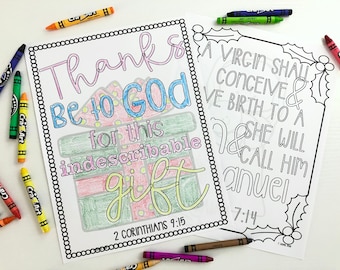 Thanks
Be to GOD
for this
indescribable
gift
2 CORINTHIANS 9:15
A VIRGIN SHALL
CONCEIVE &
VE BIRTH TO A
SHE WILL
CALL HIM
anuel
7:14